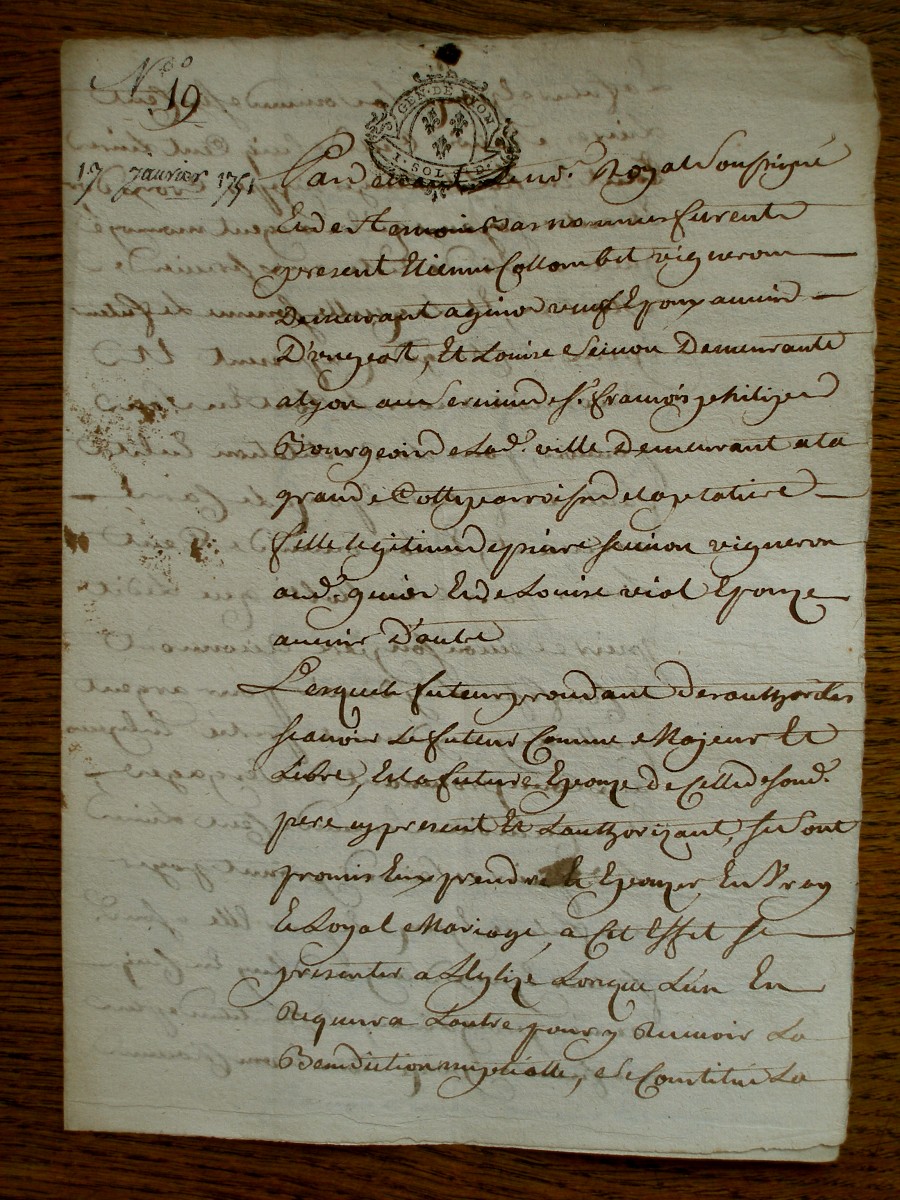 N.º
19
GEN. DE LYON
1. SOL
17 Janvier 1751
Pardevant le no.re Royal Soussigné
Et de temoins bas nommes furent
present Etienne Collombet vigneron
Demeurant a veuf Epoux a
D'unepart, Et Louise Seinon Demeurante
a Lyon au Service de Sr. françois
Bourgeois de Lad.e ville Demeurant a la
grande Cotte parroisse de la platiere
fille legitime de pierre Seinon vigneron
aud. Et de Louise viol Epouze
avenir D'autre
Lesquels futeurs procedant de authorités
scavoir Le futeur Comme Majeur Et
Libre, Et la future Epouze de Celle de sond.
pere cy present Et Lauthorizant, se sont
promis Eux prendre Et Epouzer En Vray
Et Loyal Mariage, a Cet Effet se
presenter a L'Eglize Lorsque L'un En
Requerra L'autre pour y Recevoir La
Benediction nuptialle, et Constitué La